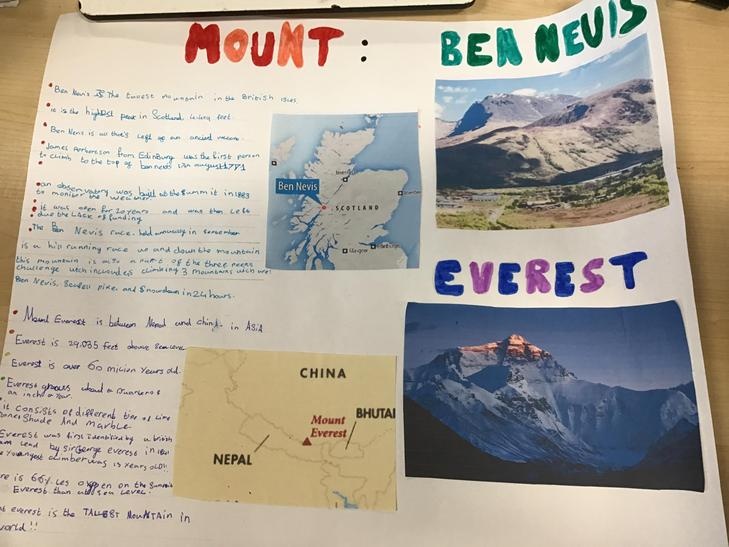 MOUNT : BEN NEVIS
Ben Nevis is the
mountain in the British isles.
it is the highest peak in Scotland
feet
Ben Nevis is all that's left
an ancient
James
from Edinburg was the first person
to climb to the top of ben nevis
august 1771
an observatory was built at the summit in 1883
to monitor the weather
it was open for 20 years and was then left
due the lack of funding
The Ben Nevis race. held annually in september
is a hill running race up and down the mountain
this mountain is also a part of the three peaks
challenge
includes climbing 3 mountains
Ben Nevis, Scafell pike, and Snowdown in 24 hours.
Ben Nevis
SCOTLAND
Glasgow
Edinburgh
EVEREST
Mount Everest is between Nepal and china in ASIA
Everest is 29,035 feet above sea level
Everest is over 60 million years old.
Everest grows about a quarter of
an inch a year.
it consists of different
of
Shale And Marble
Everest was first identified by a british
lead by sir George everest in
youngest climber was 13 years old!!
is 66% les oxygen on the summit
Everest than
sea level.
everest is the TALLEST MOUNTAIN in
world!!
CHINA
Mount
Everest
BHUTA
NEPAL